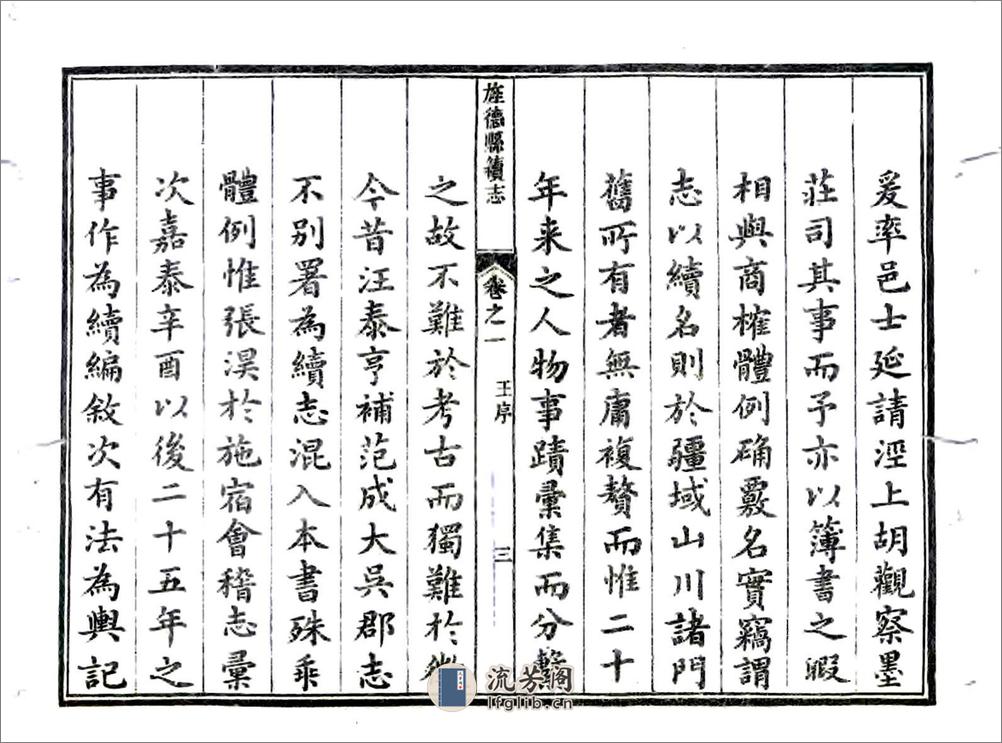 爰率邑士延請涇上胡觀察墨
莊司其事而予亦以簿書之暇
相與商榷體例确覈名實竊謂
志以續名則於疆域山川諸門
舊所有者無庸複贅而惟二十
年来之人物事蹟彙集而分繫
旌德縣續志
卷之一
王序
三
之故不難於考古而獨難於
今昔汪泰亨補范成大吳郡志
不別署為續志混入本書殊乖
體例惟張淏於施宿會稽志彙
次嘉泰辛酉以後二十五年之
事作為續編敘次有法為輿記
流芳閣
lfglib.cn